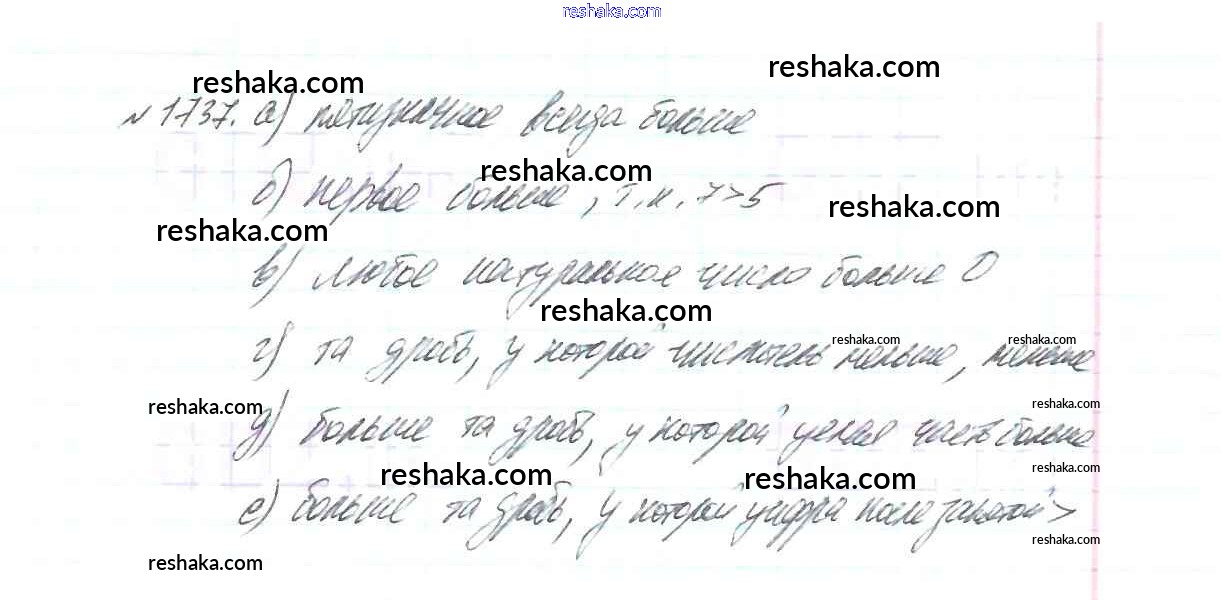 reshaka.com
reshaka.com
reshaka.com
№1737. а) пятизначное всегда больше
reshaka.com
б) первое больше, т.к. 7>5
reshaka.com
reshaka.com
в) любое натуральное число больше 0
reshaka.com
г) та дробь, у которой числитель меньше, меньше
reshaka.com
reshaka.com
reshaka.com
reshaka.com
д) больше та дробь, у которой целая часть больше
reshaka.com
reshaka.com
reshaka.com
е) больше та дробь, у которой цифра после запятой >
reshaka.com
reshaka.com